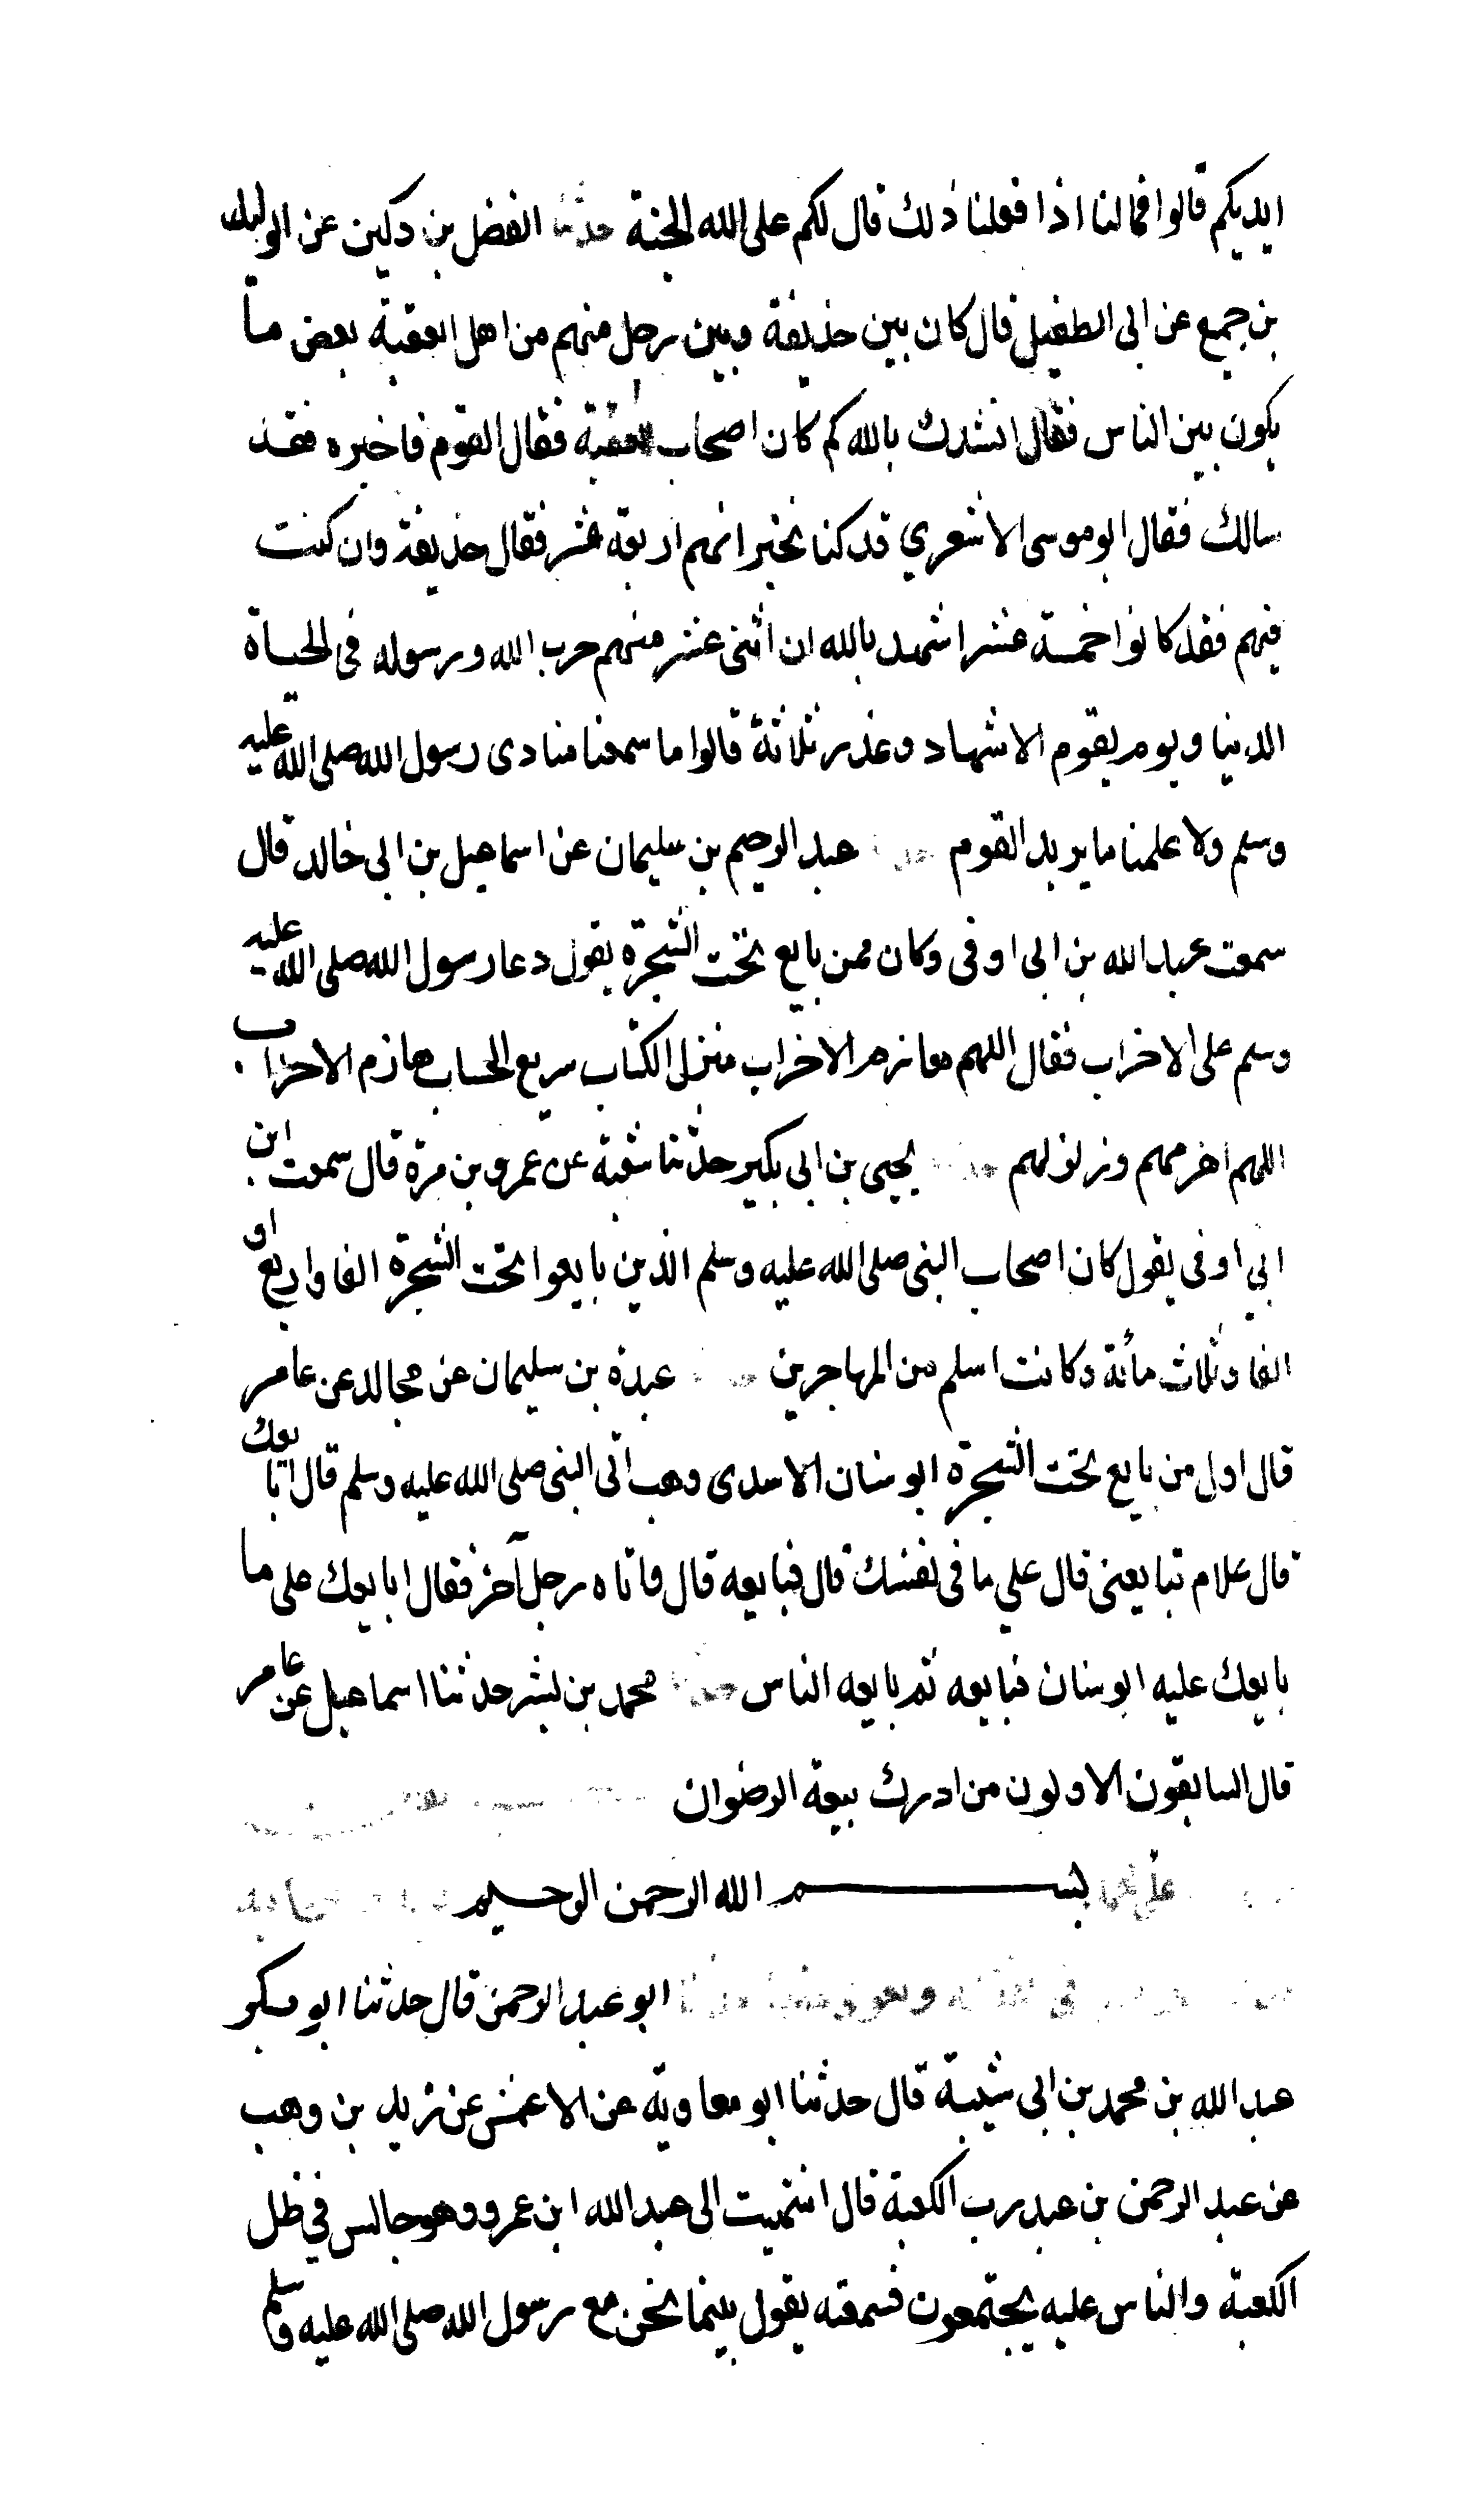 ايديكم قالوا فما لنا اذا فعلنا ذلك قال لكم على الله الجنة حدثنا الفضل بن دكين عن الوليد
بن جميع عن ابى الطفيل قال كان بين حذيفة وبين رجل منهم من اهل العقبة بعض ما
يكون بين الناس فقال انشدك بالله كم كان اصحاب العقبة فقال القوم فاخبره فقد
سالك فقال ابو موسى الاشعري قد كنا نخبر انهم اربعة عشر فقال حذيفة وان كنت
فيهم فقد كانوا خمسة عشر اشهد بالله ان اثنى عشر منهم حرب الله ورسوله فى الحياة
الدنيا ويوم يقوم الاشهاد وعذر ثلاثة قالوا ما سمعنا منادى رسول الله صلى الله عليه
وسلم ولا علمنا ما يريد القوم عبد الرحيم بن سليمان عن اسماعيل بن ابى خالد قال
سمعت عبد الله بن ابى اوفى وكان ممن بايع تحت الشجرة يقول دعا رسول الله صلى الله عليه
وسلم على الاحزاب فقال اللهم هازم الاحزاب منزل الكتاب سريع الحساب هازم الاحزاب
اللهم اهزمهم وزلزلهم يحيى بن ابى بكير حدثنا شعبة عن عمرو بن مرة قال سمعت ابن
ابي اوفى يقول كان اصحاب النبى صلى الله عليه وسلم الذين بايعوا تحت الشجرة الفا واربع او
الفا وثلاث مأئة وكانت اسلم من المهاجرين عبدة بن سليمان عن مجالد عن عامر
قال اول من بايع تحت الشجرة ابو سنان الاسدى وهب اتى النبى صلى الله عليه وسلم قال ابايعك
قال علام تبايعنى قال علي ما فى نفسك قال فبايعه قال فاتاه رجل آخر فقال ابايعك على ما
بايعك عليه ابو سنان فبايعه ثم بايعه الناس حدثنا محمد بن بشر حدثنا اسماعيل عن عامر
قال السابقون الاولون من ادرك بيعة الرضوان
بسم الله الرحمن الرحيم
ابو عبد الرحمن قال حدثنا ابو بكر
عبد الله بن محمد بن ابى شيبة قال حدثنا ابو معاوية عن الاعمش عن زيد بن وهب
عن عبد الرحمن بن عبد رب الكعبة قال انتهيت الى عبد الله ابن عمرو وهو جالس في ظل
الكعبة والناس عليه يجتمعون فسمعته يقول بينما نحن مع رسول الله صلى الله عليه وسلم